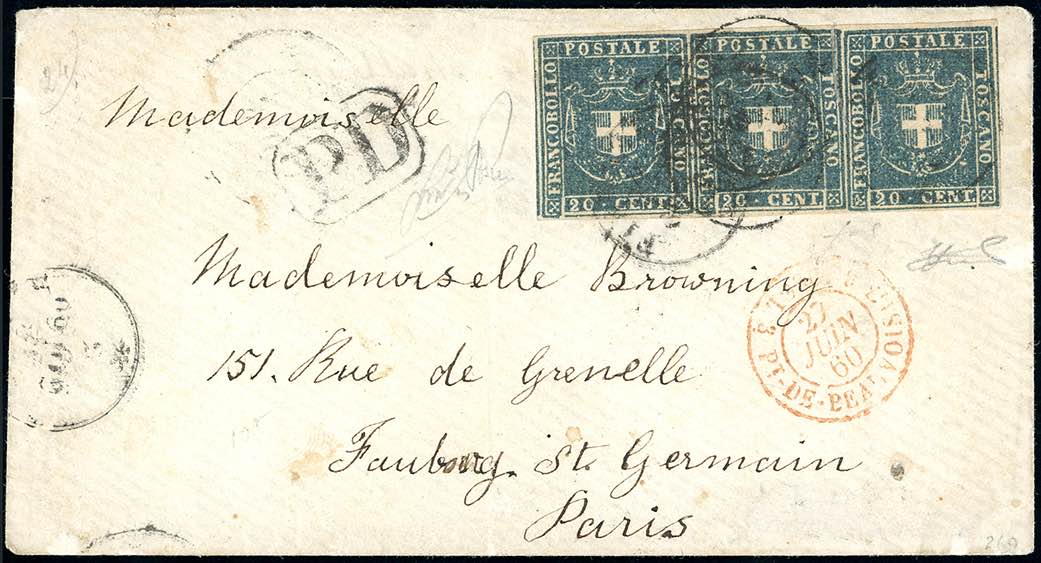 24
POSTALE POSTALE POSTALE
FRANCOBOLLO TOSCANO FRANCOBOLLO TOSCANO FRANCOBOLLO TOSCANO
20 CENT 20 CENT. 20 CENT.
Mademoiselle
PD
Mademoiselle Browning
27
JUIN
60
3 PT-DE-BEAU
151. Rue de Grenelle
Faubourg. St. Germain
Paris